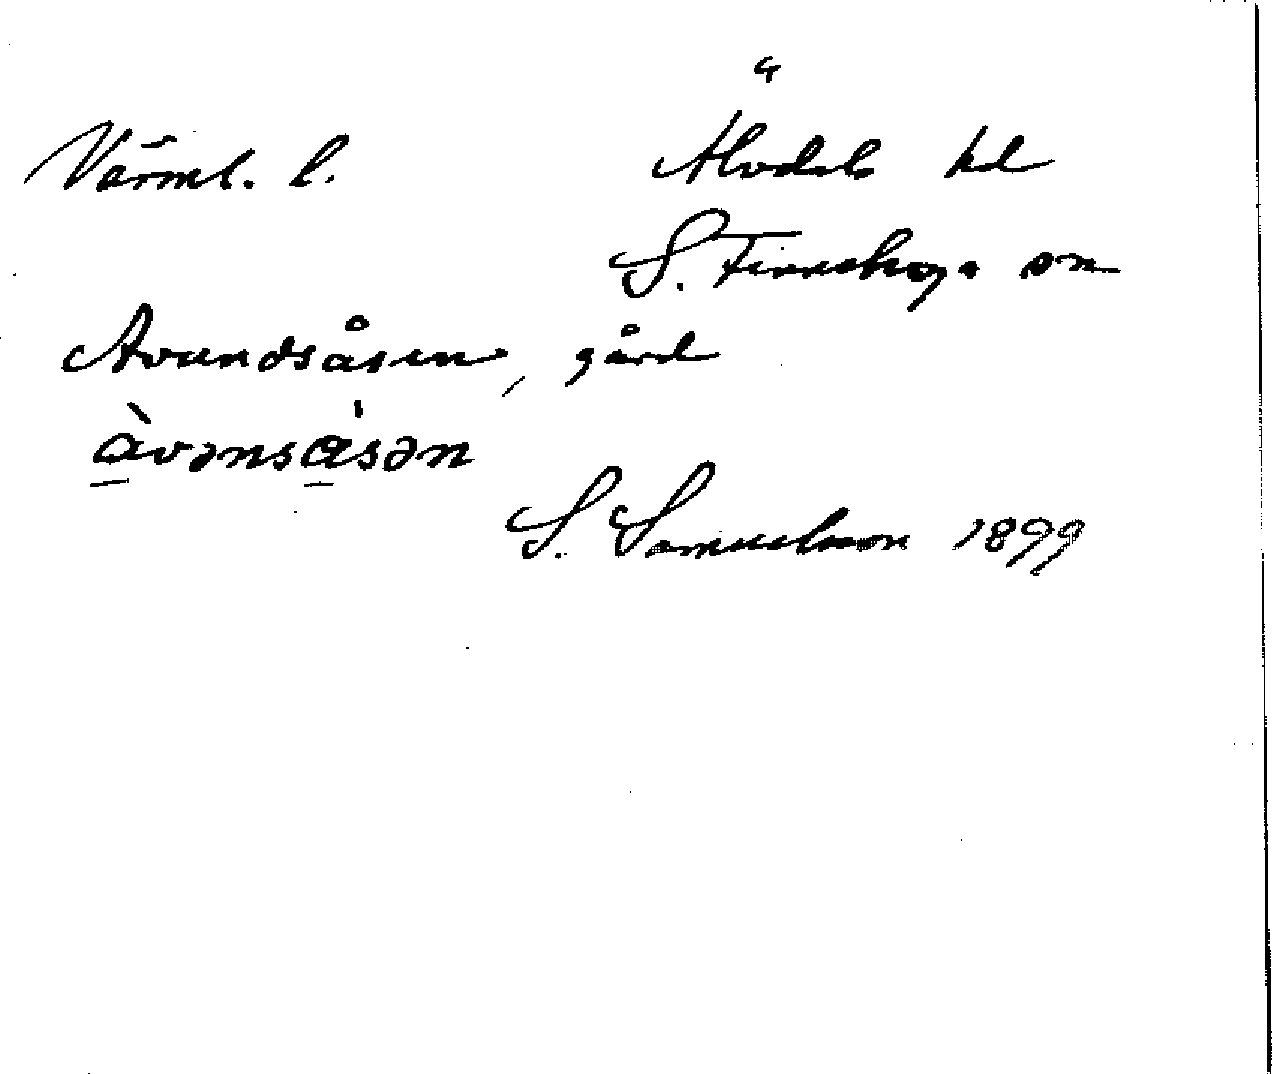 Värml. l. Älvdals hd
S. Finnskoga sn
Avundsåsen, gård
àvənsa̍sən
S. Samuelsson 1899